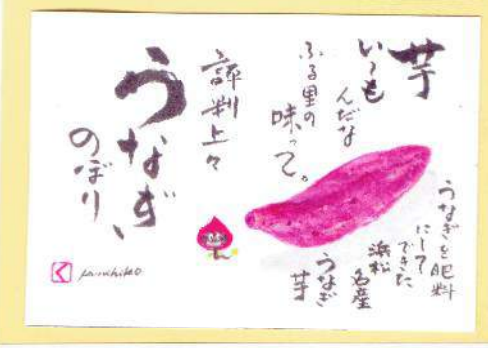 芋
いゝも
んだな
ふる里の
味って。
評判上々
うなぎ、
のぼり
うなぎを肥料
にして
できた
浜松
名産
うなぎ
芋
く